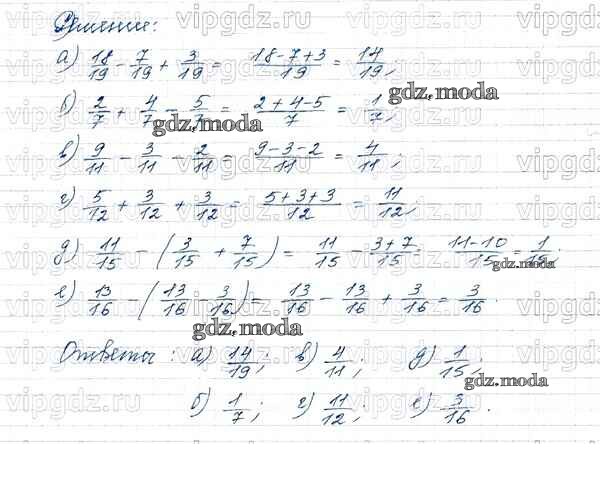 Решение:
а) 18/19 - 7/19 + 3/19 = (18-7+3)/19 = 14/19;
б) 2/7 + 4/7 - 5/7 = (2+4-5)/7 = 1/7;
в) 9/11 - 3/11 - 2/11 = (9-3-2)/11 = 4/11;
г) 5/12 + 3/12 + 3/12 = (5+3+3)/12 = 11/12;
д) 11/15 - (3/15 + 7/15) = 11/15 - (3+7)/15 = (11-10)/15 = 1/15;
е) 13/16 - (13/16 - 3/16) = 13/16 - 13/16 + 3/16 = 3/16.
Ответы: а) 14/19; в) 4/11; д) 1/15;
б) 1/7; г) 11/12; е) 3/16.
gdz.moda
gdz.moda
gdz.moda
gdz.moda
gdz.moda
vipgdz.ru